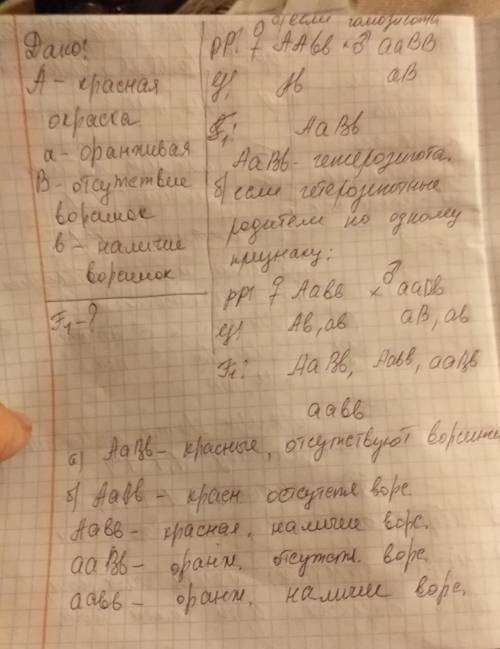 Дано:
А - красная
окраска
а - оранжевая
В - отсутствие
ворсинок
в - наличие
ворсинок
F₁ - ?
а) если гомозигота
РР: ♀ ААвв × ♂ ааВВ
Ав аВ
F₁: АаВв
АаВв - гетерозигота.
б) если гетерозиготные
родители по одному
признаку:
РР: ♀ Аавв × ♂ ааВв
Ав, ав аВ, ав
F₁: АаВв, Аавв, ааВв
аавв
а) АаВв - красные, отсутствуют ворсинки
б) АаВв - красн ворс
Аавв - красная, наличие ворс.
ааВв - оранж. отсутств. ворс
аавв - оранж. наличие ворс.